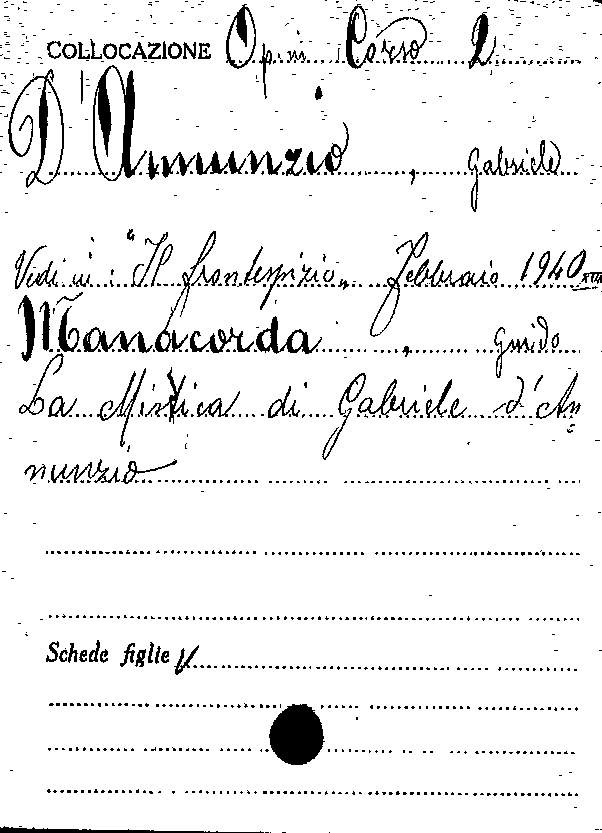 COLLOCAZIONE Op. in Corso 2
D'Annunzio, Gabriele
Vedi in: "Il frontespizio" Febbraio 1940 XVIII
Manacorda, Guido
La Mistica di Gabriele d'An
nunzio
Schede figlie